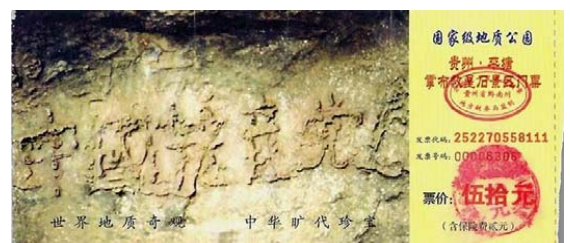 中國共产党
世界地质奇观 中华旷代珍宝
国家级地质公园
贵州·平塘
掌布救星石景区门票
贵州省黔南州
发票代码: 252270558111
发票号码: 00008306
票价: 伍拾元
(含保险费贰元)